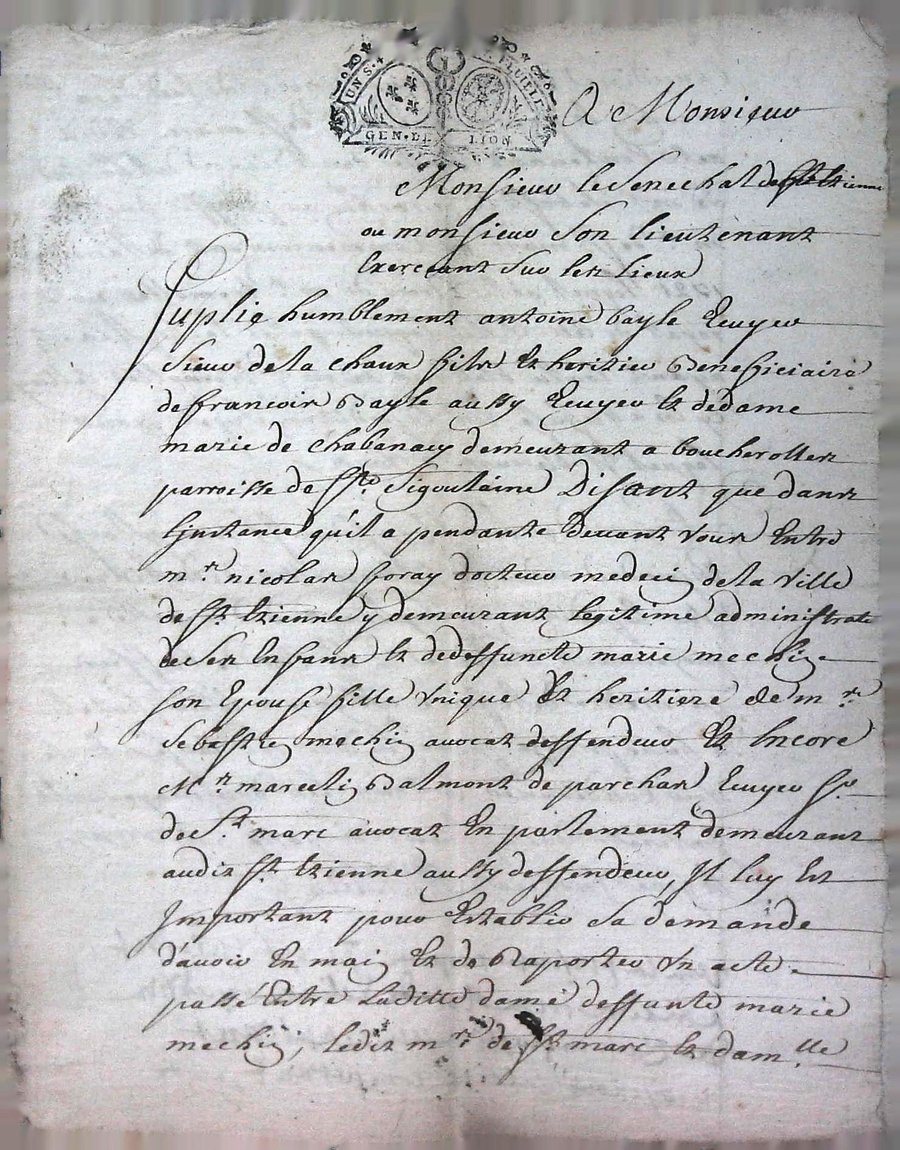 UN S. FEUILLE
GEN. DE LION
A Monsieur
Monsieur le Senechal de St Etienne
ou monsieur Son lieutenant
Exerceant Sur les Lieux
Suplie humblement antoine bayle Ecuyer
Sieur de la Chaux fils et heritier Beneficiaire
de francois Bayle aussy Ecuyer et de dame
marie de Chabanacy demeurant a boucherolles
parroisse de Ste Sigoulaine Disant que dans
Linstance qu'il a pendante devant vous Entre
mr. nicolas foray docteur medecin de la ville
de St. Etienne y demeurant legitime administrate
de Ses Enfans et de deffuncte marie mechin
son Epouse fille unique et heritiere de mr.
Sebastien mechin avocat deffendeur et Encore
Mr. marcelin Balmont de parchas Ecuyer Sr
de St marc avocat En parlement demeurant
audit St. Etienne aussy deffendeur, Il luy est
Important pour Establir Sa demande
d'avoir En main et de Raporter un acte
passé Entre Laditte dame deffunte marie
mechin, ledit mr. de St marc et damlle